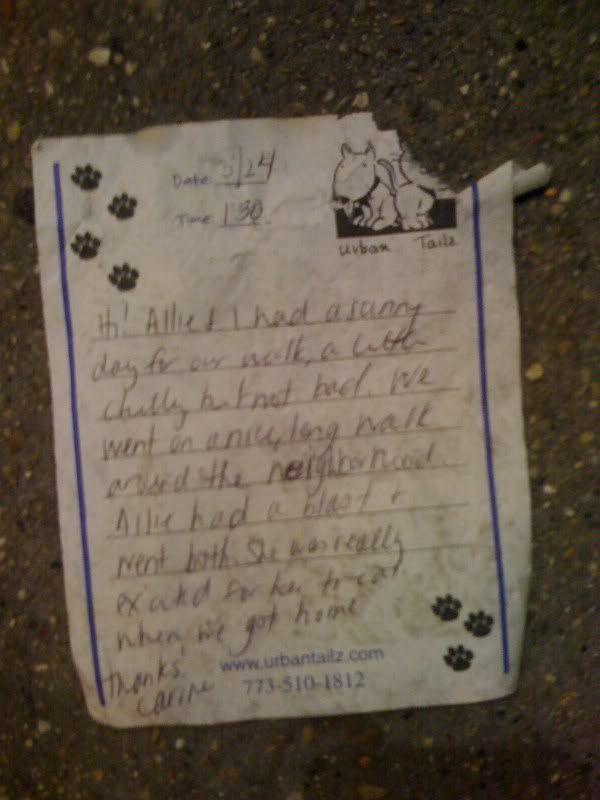 Date 3/24
Time 1:30
Urban Tailz
Hi! Allie & I had a sunny
day for our walk, a little
chilly but not bad. We
went on a nice, long walk
around the neighborhood.
Allie had a blast &
went both. She was really
excited for her treat
when we got home
Thanks!
Carine
www.urbantailz.com
773-510-1812